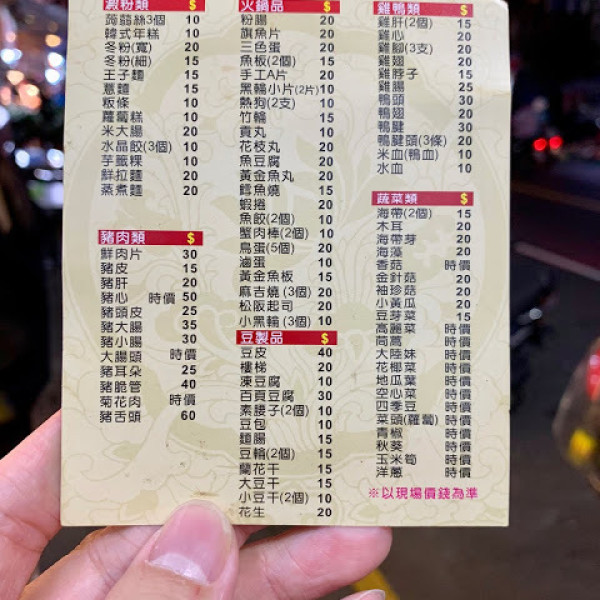 澱粉類 $
蒟蒻絲3個 10
韓式年糕 10
冬粉(寬) 20
冬粉(細) 15
王子麵 15
意麵 15
粄條 10
蘿蔔糕 10
米大腸 20
水晶餃(3個) 10
芋籤粿 10
鮮拉麵 20
蒸煮麵 20
豬肉類 $
鮮肉片 30
豬皮 15
豬肝 20
豬心 時價 50
豬頭皮 25
豬大腸 35
豬小腸 30
大腸頭 時價
豬耳朵 25
豬脆管 40
菊花肉 時價
豬舌頭 60
火鍋品 $
粉腸 20
旗魚片 20
三色蛋 20
魚板(2個) 15
手工A片 20
黑輪小片(2片)10
熱狗(2支) 10
竹輪 15
貢丸 10
花枝丸 20
魚豆腐 20
黃金魚丸 20
鱈魚燒 15
蝦捲 20
魚餃(2個) 10
蟹肉棒(2個) 10
鳥蛋(5個) 20
滷蛋 10
黃金魚板 15
麻吉燒(3個) 20
松阪起司 20
小黑輪(3個) 10
豆製品 $
豆皮 40
樓梯 20
凍豆腐 10
百頁豆腐 30
素腰子(2個) 10
豆包 10
麵腸 15
豆輪(2個) 15
蘭花干 15
大豆干 15
小豆干(2個) 10
花生 20
雞鴨類 $
雞肝(2個) 15
雞心 20
雞腳(3支) 20
雞翅 20
雞脖子 15
雞腸 25
鴨頭 30
鴨翅 20
鴨腱 30
鴨腱頭(3條) 20
米血(鴨血) 10
水血 10
蔬菜類 $
海帶(2個) 15
木耳 20
海帶芽 20
海藻 20
香菇 時價
金針菇 20
袖珍菇 20
小黃瓜 20
豆芽菜 15
高麗菜 時價
茼蒿 時價
大陸妹 時價
花椰菜 時價
地瓜葉 時價
空心菜 時價
四季豆 時價
菜頭(蘿蔔) 時價
青椒 時價
秋葵 時價
玉米筍 時價
洋蔥 時價
※以現場價錢為準